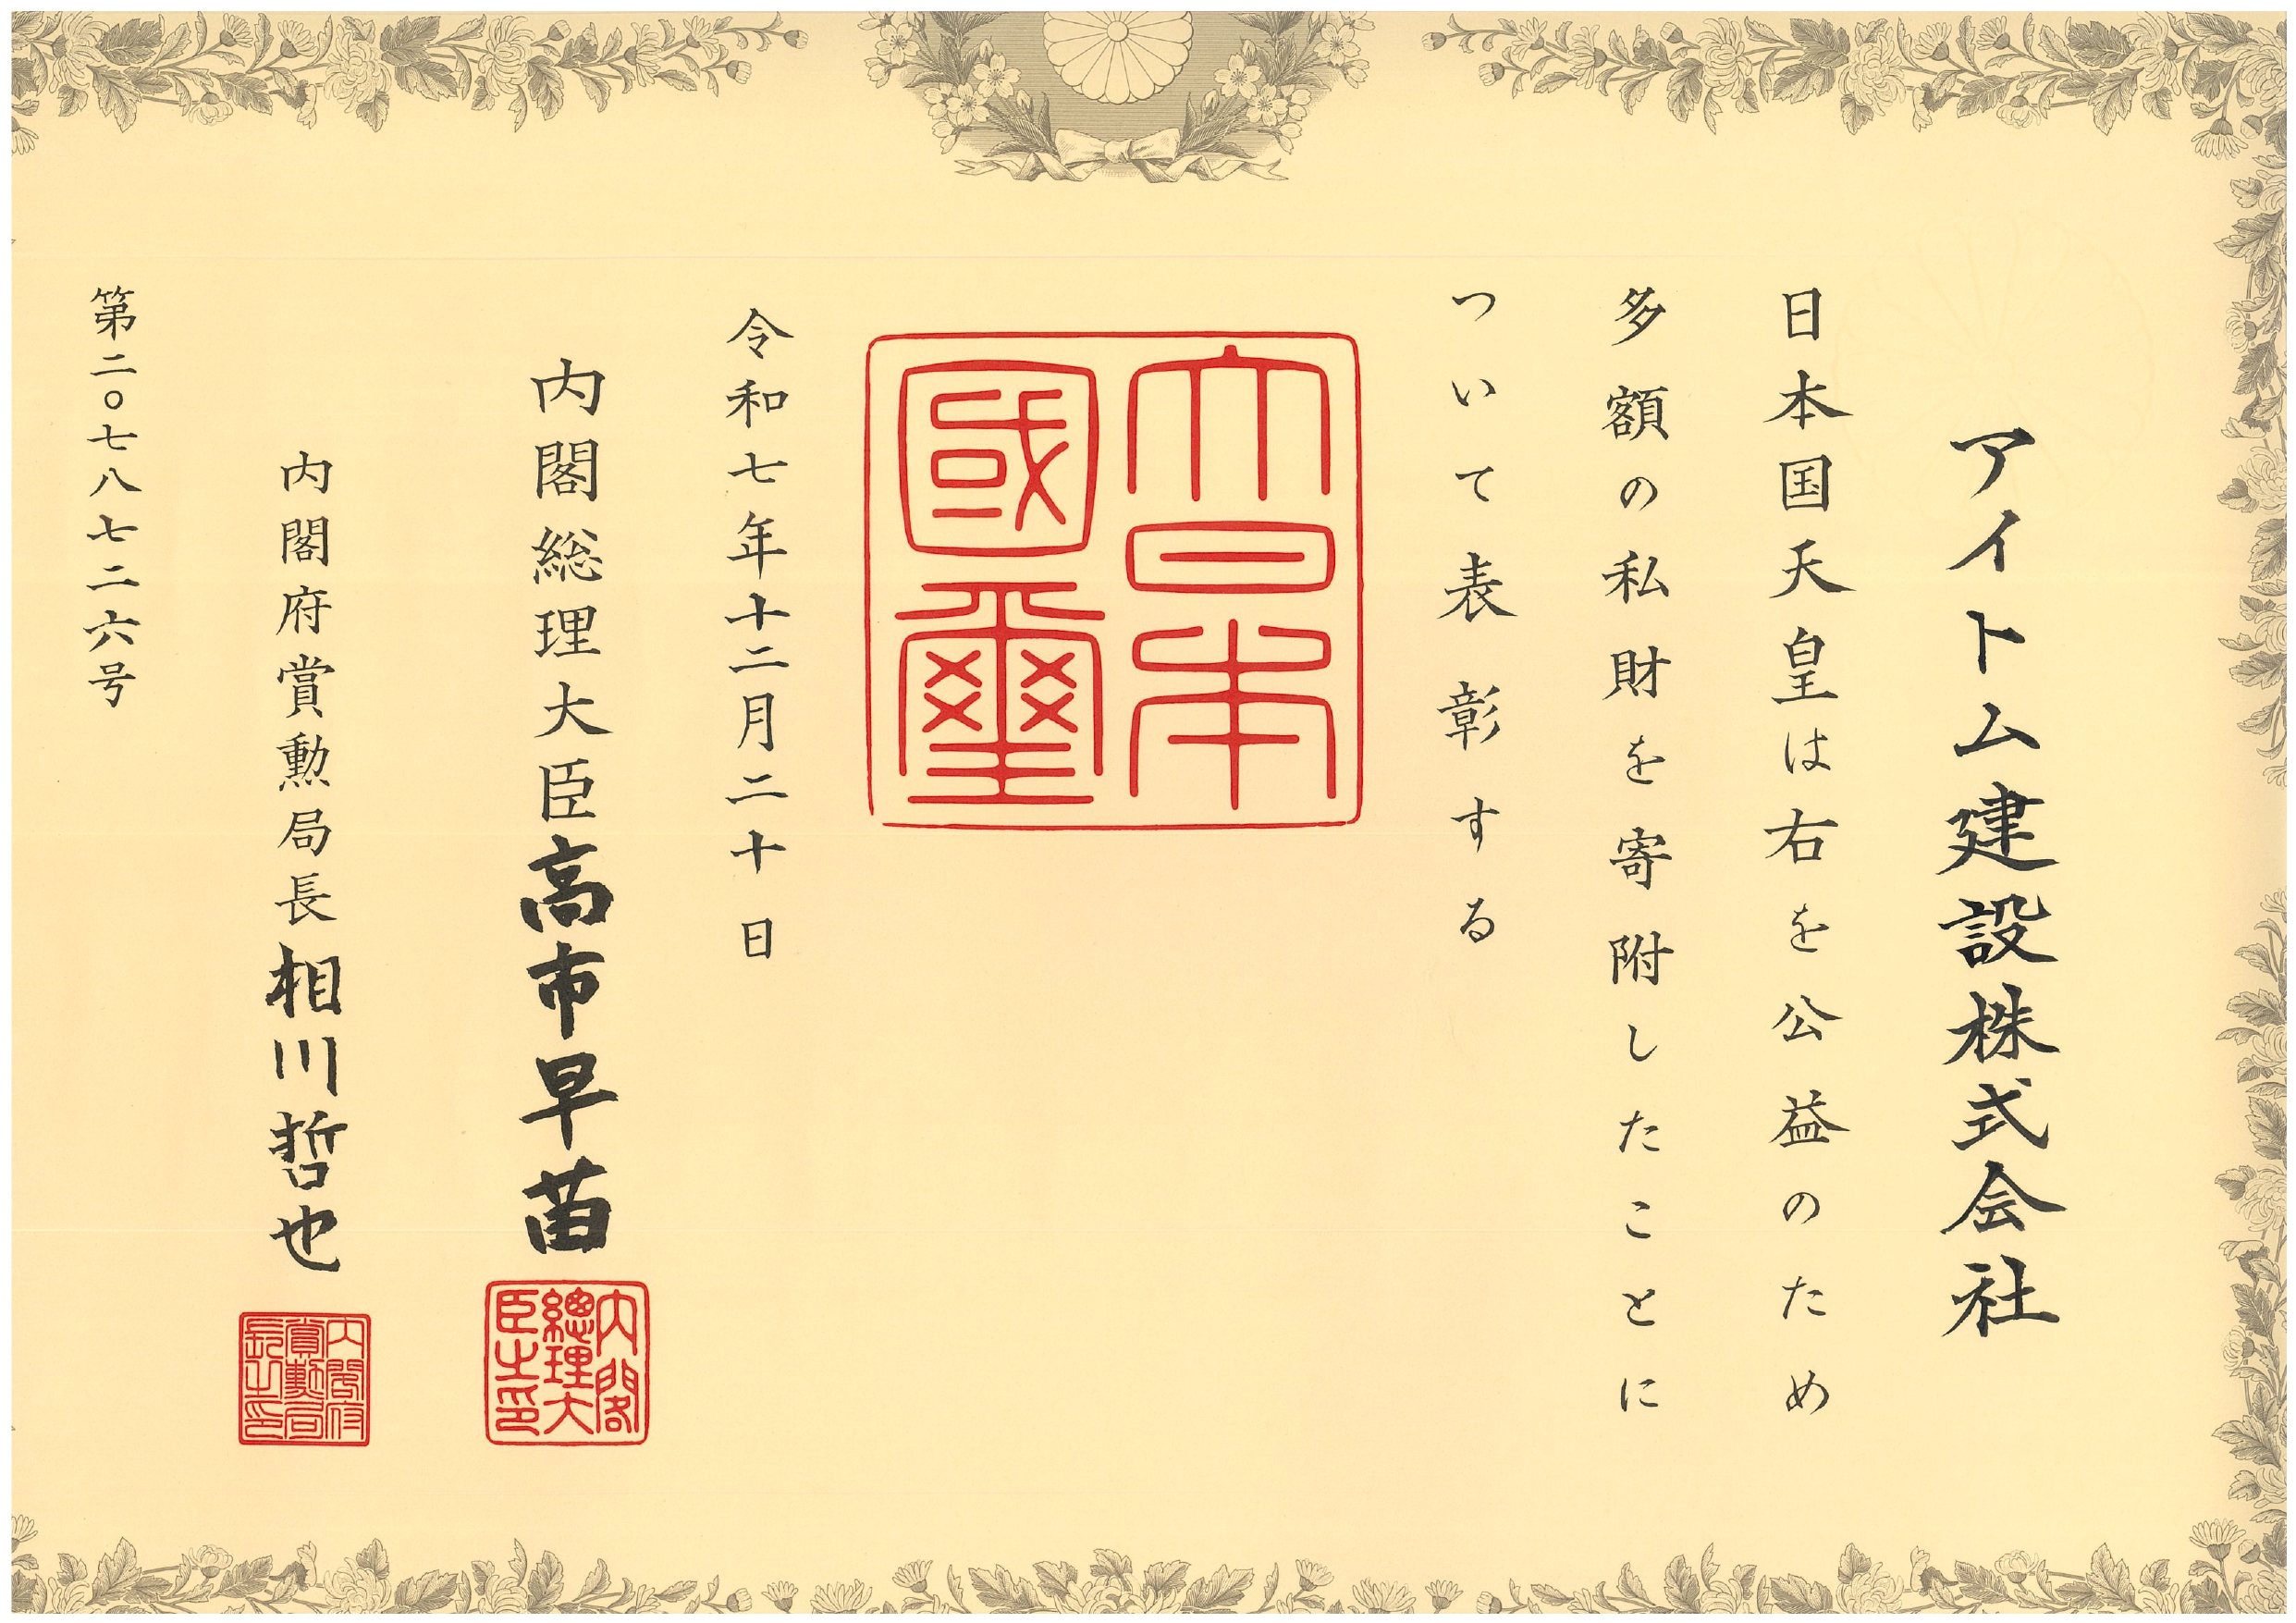 アイトム建設株式会社
日本国天皇は右を公益のため
多額の私財を寄附したことに
ついて表彰する
大日本國璽
令和七年十二月二十日
内閣総理大臣高市早苗
内閣總理大臣之印
内閣府賞勲局長相川哲也
内閣府賞勲局長之印
第二〇七八七二六号